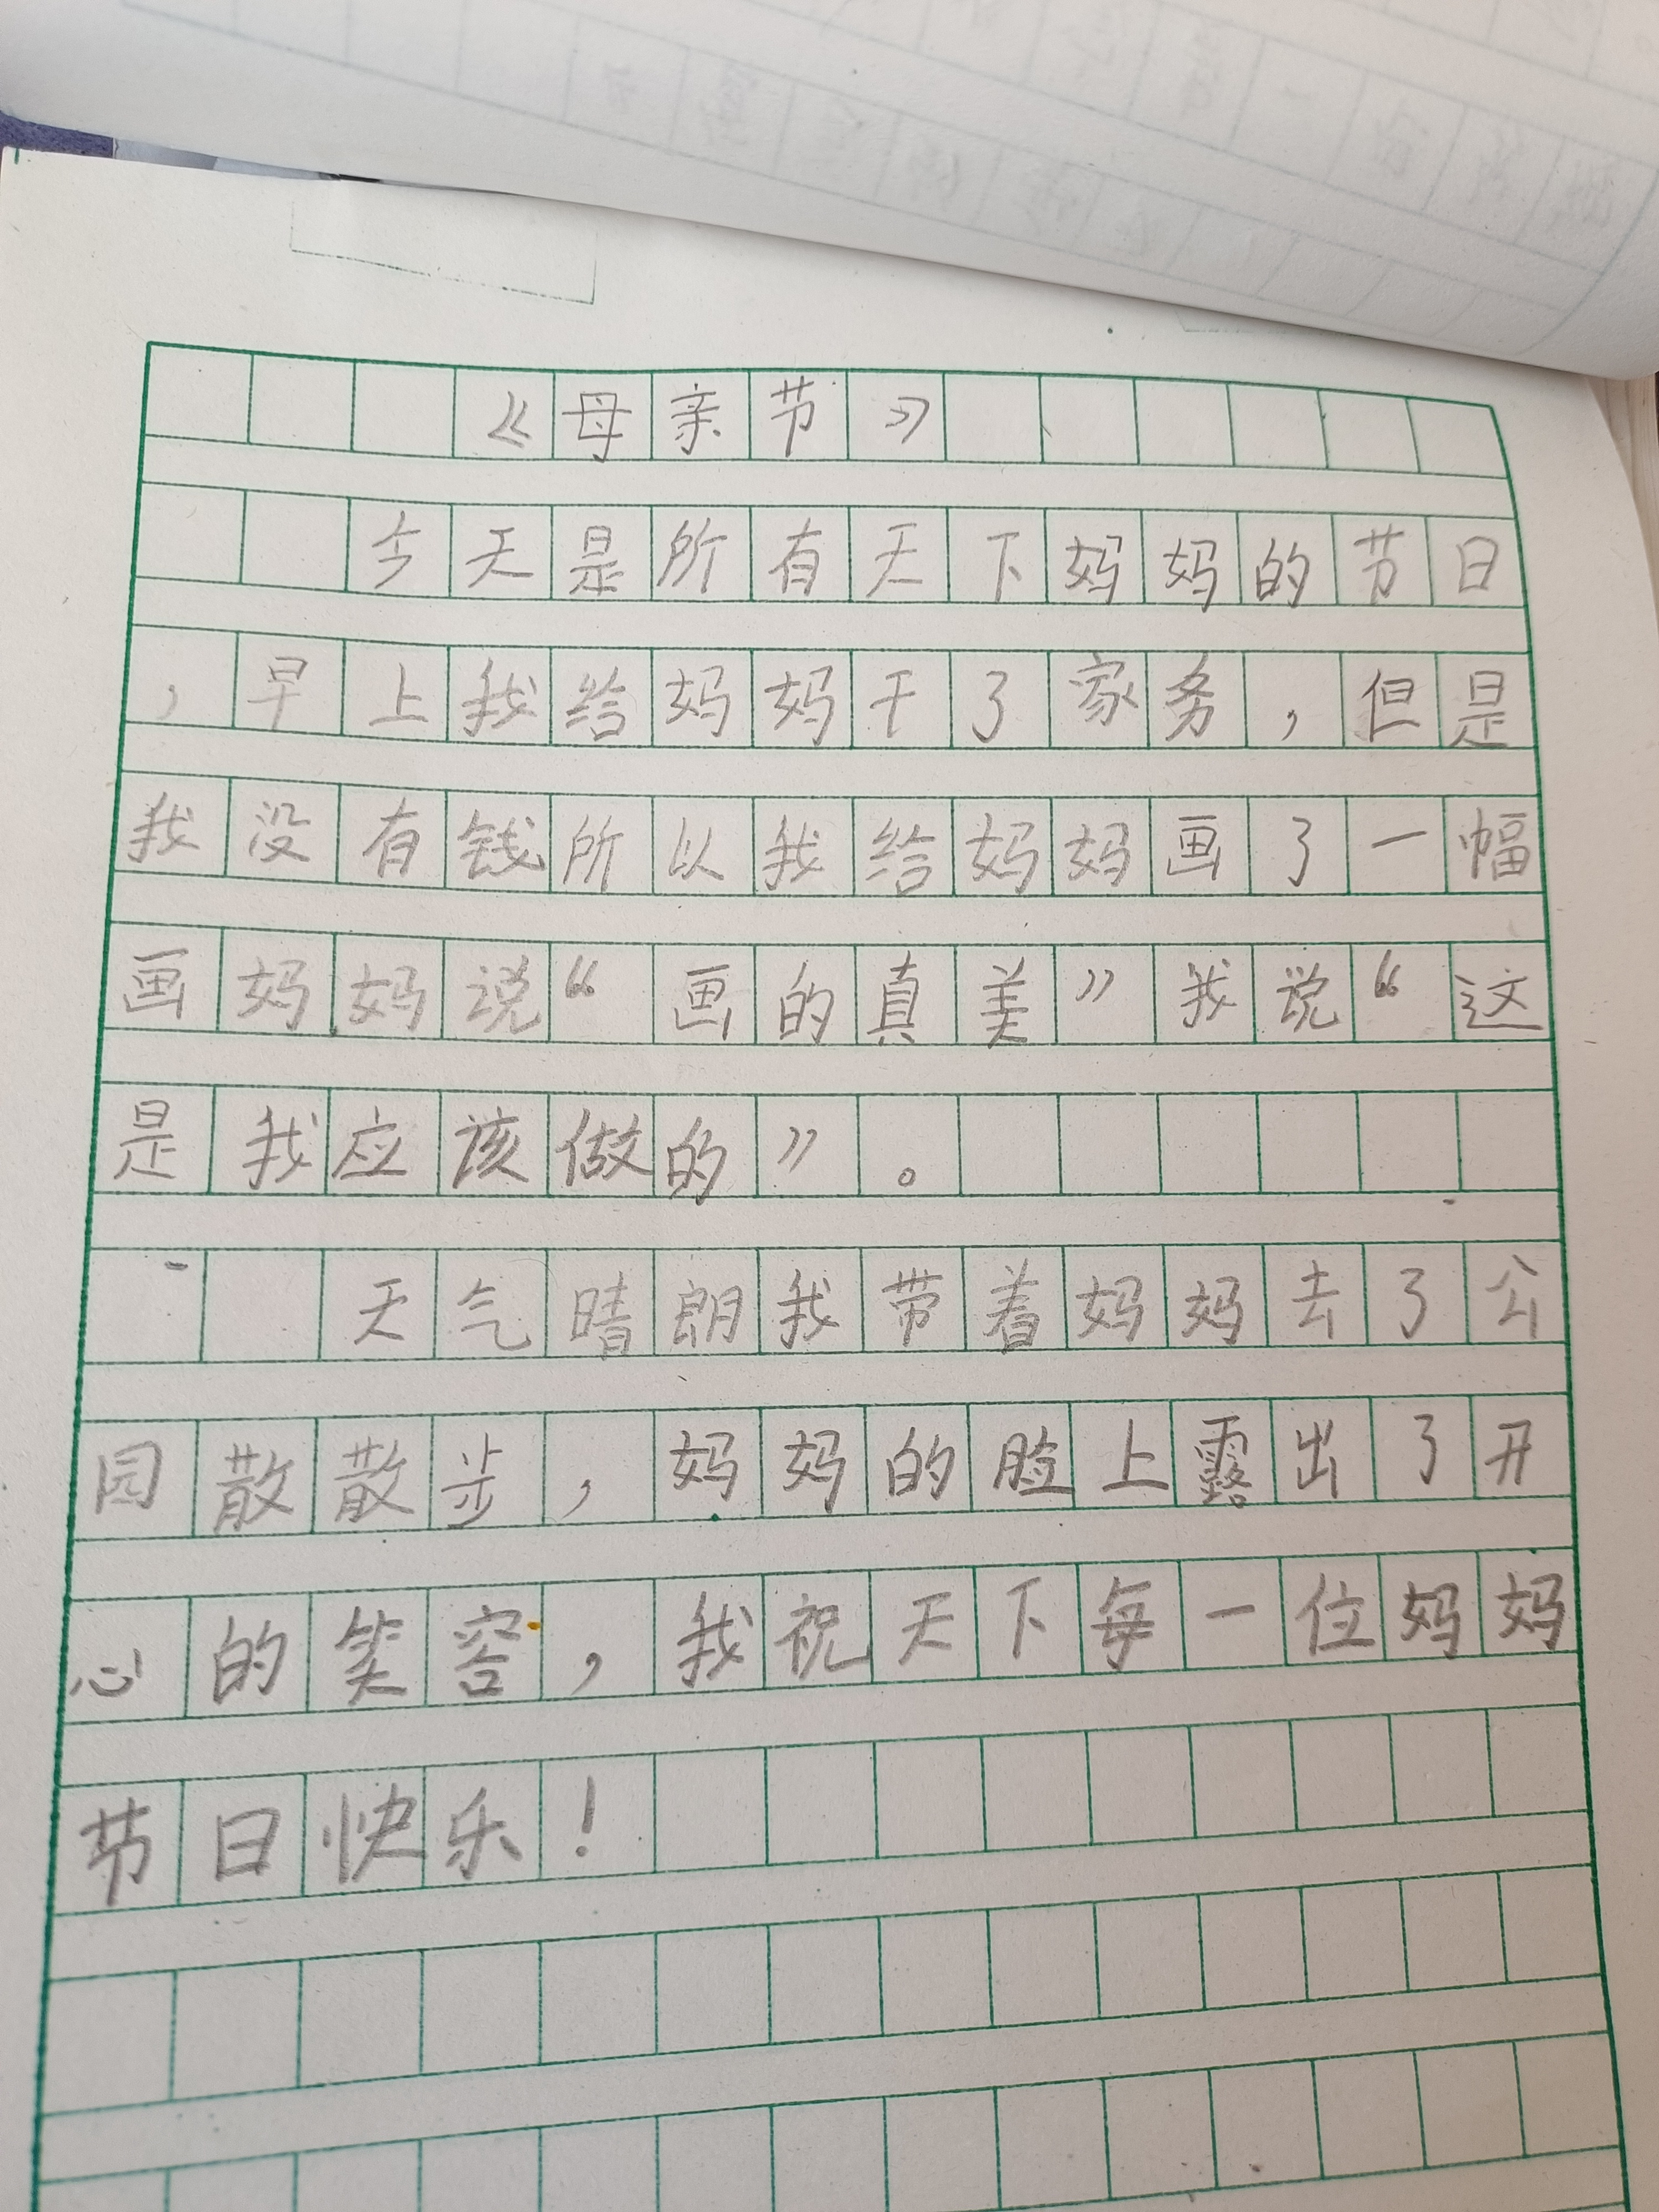 《母亲节》
今天是所有天下妈妈的节日
，早上我给妈妈干了家务，但是
我没有钱所以我给妈妈画了一幅
画妈妈说“画的真美”我说“这
是我应该做的”。
天气晴朗我带着妈妈去了公
园散散步，妈妈的脸上露出了开
心的笑容，我祝天下每一位妈妈
节日快乐！